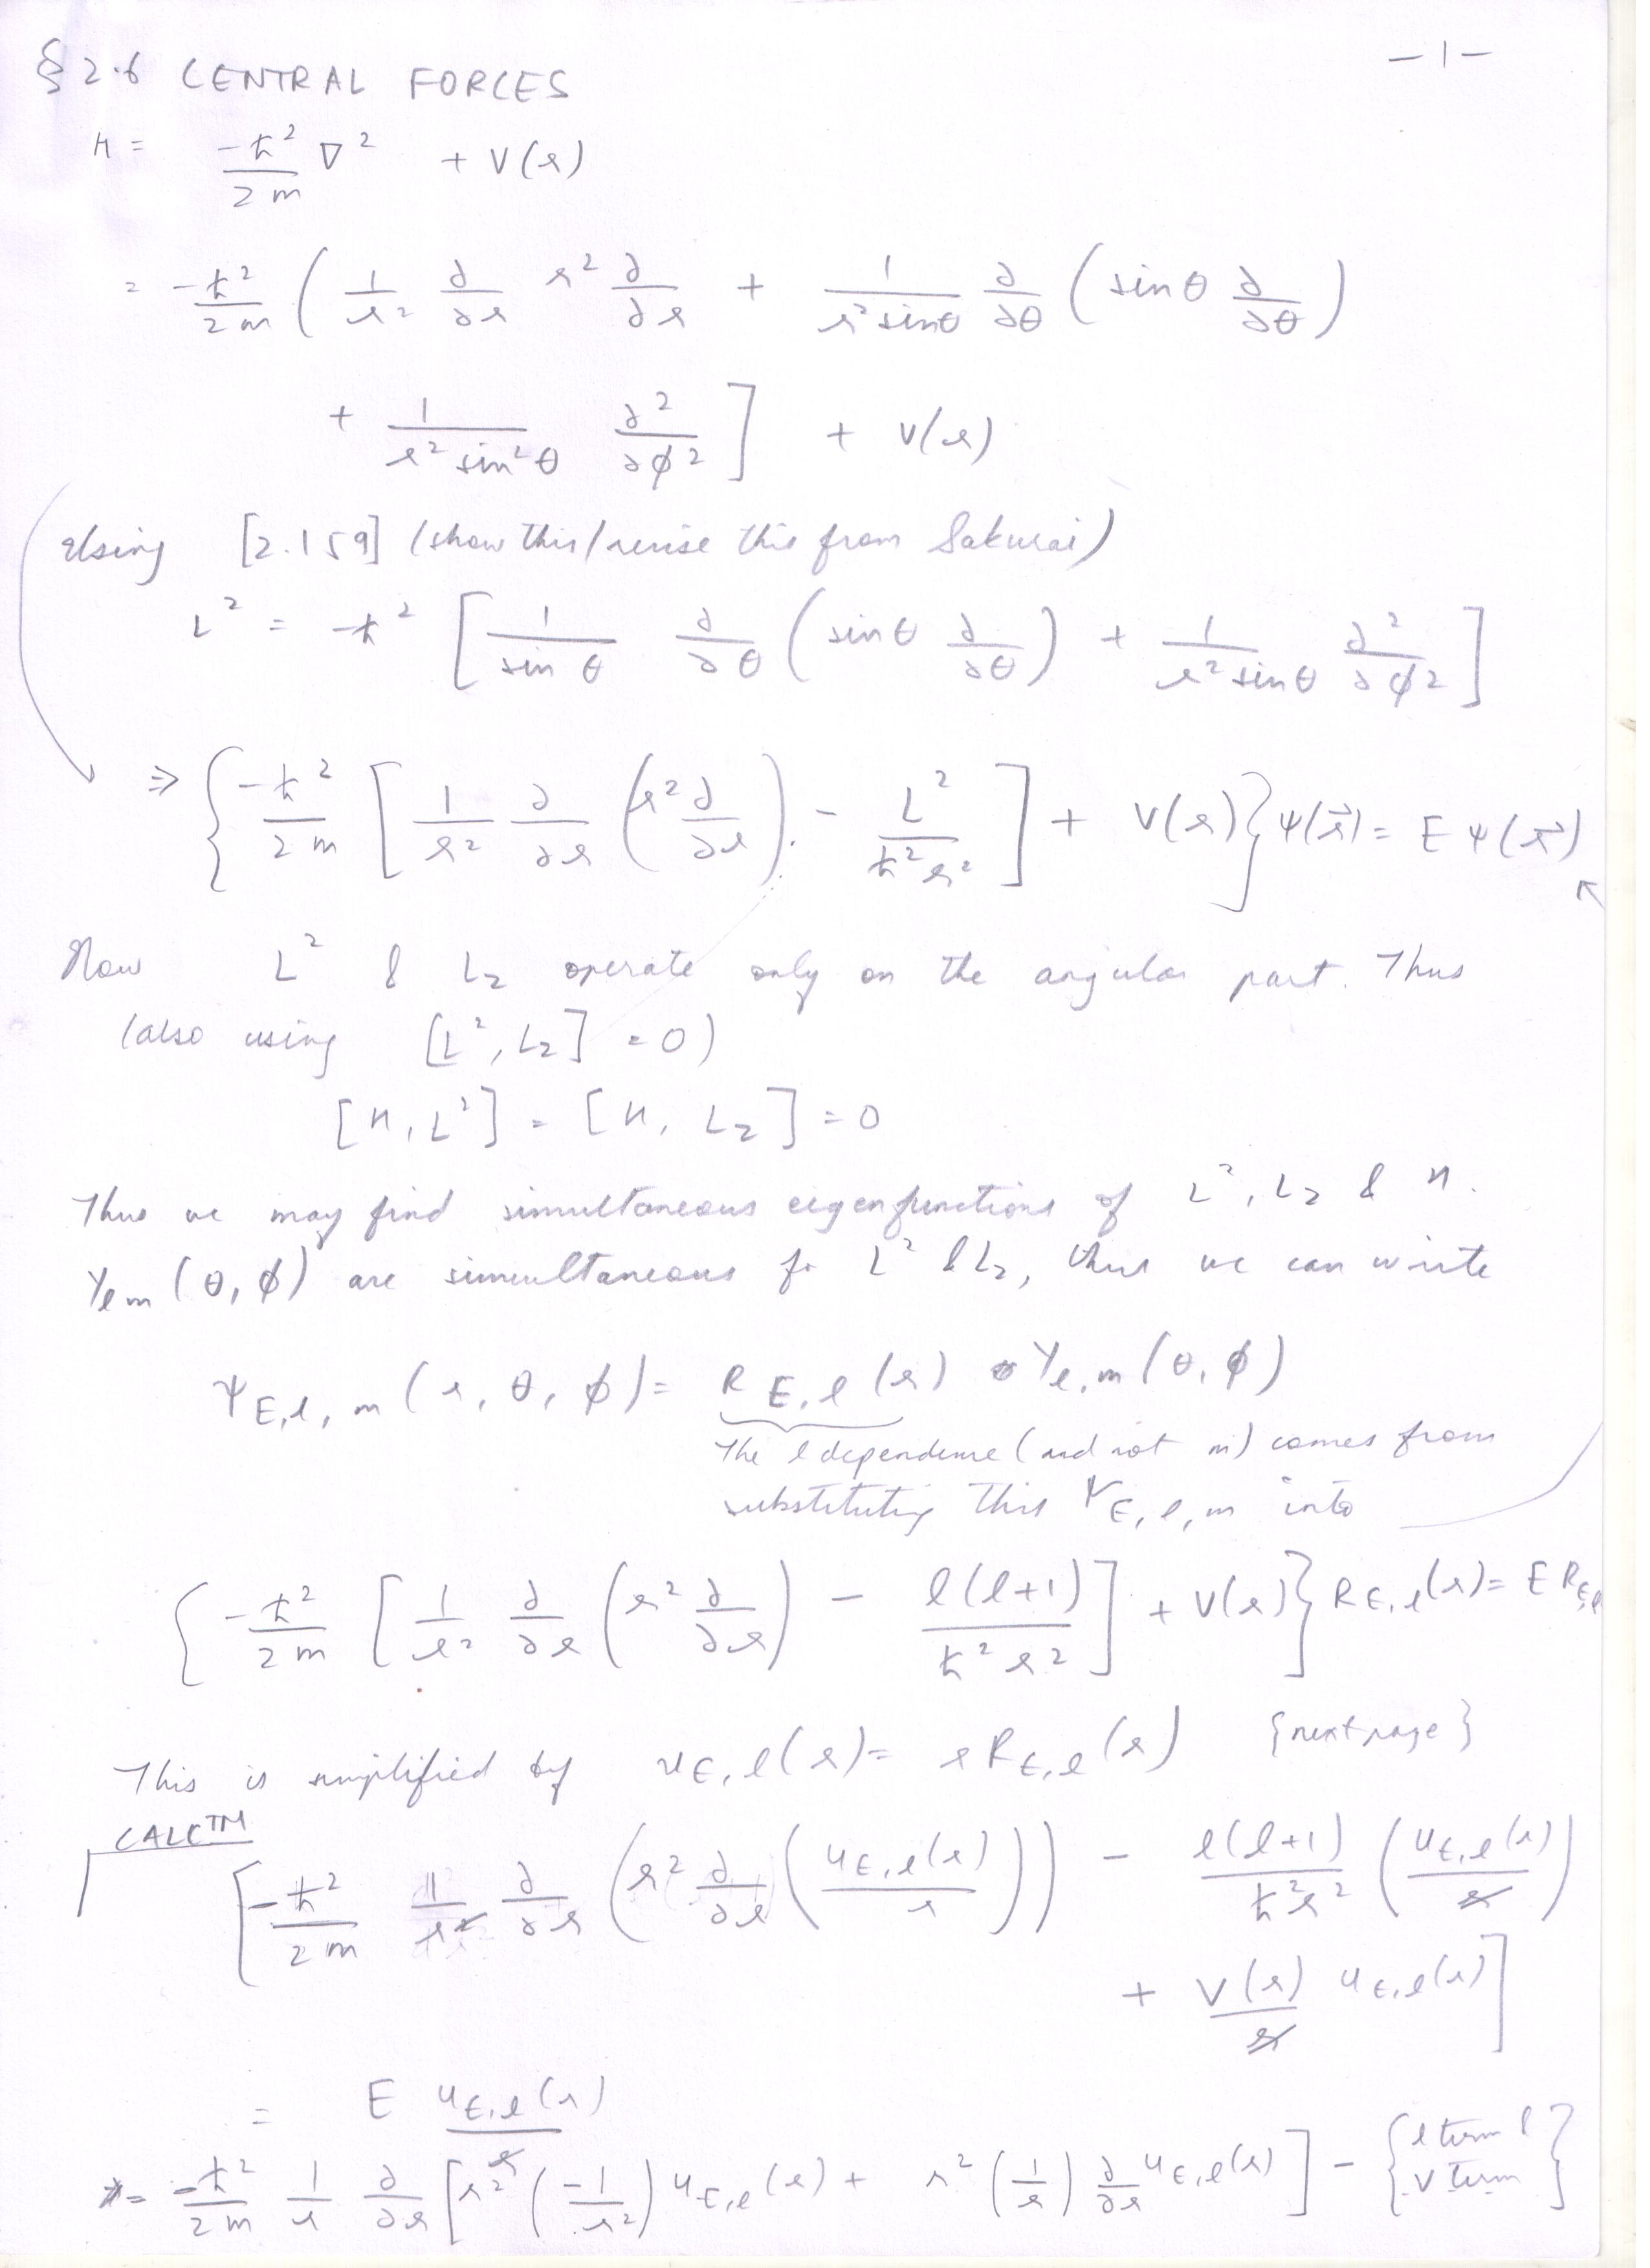 § 2.6 CENTRAL FORCES
-1-
H = -ħ²/2m ∇² + V(r)
= -ħ²/2m ( 1/r² ∂/∂r r² ∂/∂r + 1/(r² sinθ) ∂/∂θ ( sinθ ∂/∂θ )
+ 1/(r² sin²θ) ∂²/∂ϕ² ] + V(r)
Using [2.159] (show this/revise this from Sakurai)
L² = -ħ² [ 1/sin θ ∂/∂θ ( sinθ ∂/∂θ ) + 1/(r² sinθ) ∂²/∂ϕ² ]
⇒ { -ħ²/2m [ 1/r² ∂/∂r ( r² ∂/∂r ) - L²/(ħ² r²) ] + V(r) } ψ(r⃗) = E ψ(r⃗)
Now L² & Lz operate only on the angular part. Thus
(also using [L², Lz] = 0)
[H, L²] = [H, Lz] = 0
Thus we may find simultaneous eigenfunctions of L², Lz & H.
Yℓm (θ, ϕ) are simultaneous fn L² & Lz, thus we can write
ψE,ℓ,m (r, θ, ϕ) = RE,ℓ (r) Yℓ,m (θ, ϕ)
The ℓ dependence (and not m) comes from
substituting this ψE,ℓ,m into
{ -ħ²/2m [ 1/r² ∂/∂r ( r² ∂/∂r ) - ℓ(ℓ+1)/(ħ² r²) ] + V(r) } RE,ℓ(r) = E RE,ℓ
This is simplified by uE,ℓ(r) = r RE,ℓ (r) {next page}
CALC™
[ -ħ²/2m 1/r ∂/∂r ( r² ∂/∂r ( uE,ℓ(r)/r ) ) - ℓ(ℓ+1)/(ħ² r²) ( uE,ℓ(r)/r )
+ V(r)/r uE,ℓ(r) ]
= E uE,ℓ(r)/r
= -ħ²/2m 1/r ∂/∂r [ r² ( -1/r² ) uE,ℓ(r) + r² ( 1/r ) ∂/∂r uE,ℓ(r) ] - { ℓ term
V term }